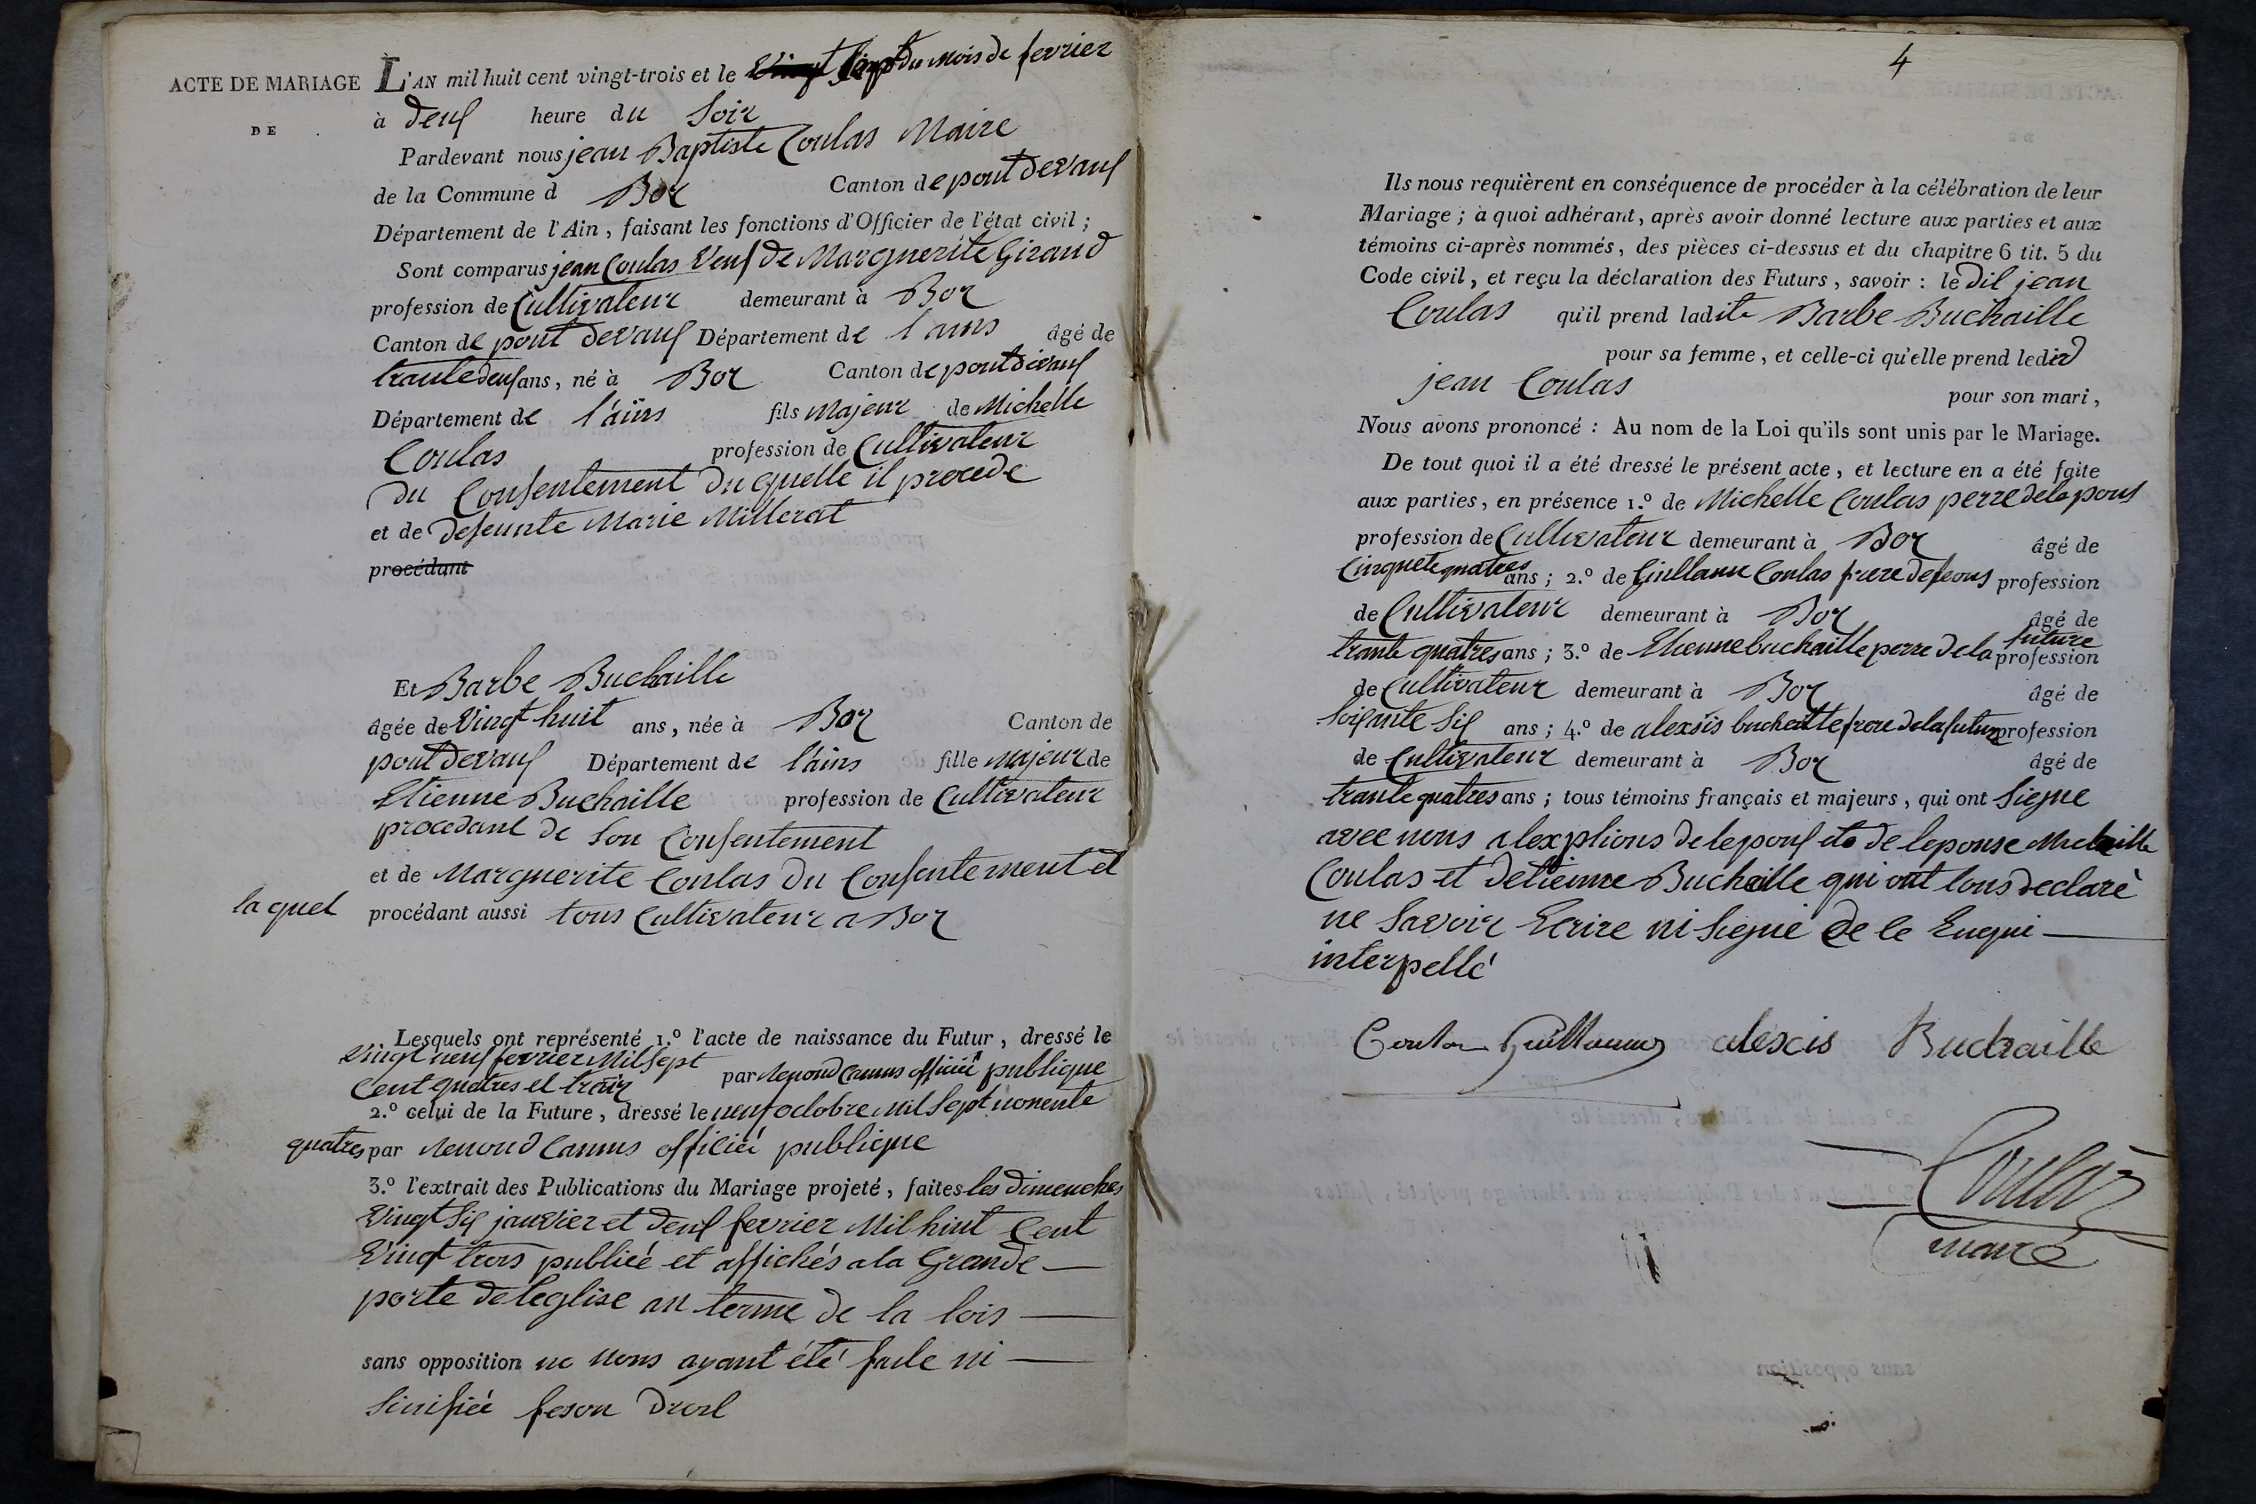 ACTE DE MARIAGE
DE
L'AN mil huit cent vingt-trois et le Vingt du mois de fevrier
à deux heure du Soir
Pardevant nous jean Baptiste Coulas Maire
de la Commune d Boz Canton de pont devaux
Département de l'Ain, faisant les fonctions d'Officier de l'état civil ;
Sont comparus jean Coulas Veuf de Marguerite Giraud
profession de Cultivateur demeurant à Boz
Canton de pont devaux Département de l'ains âgé de
trantedeux ans, né à Boz Canton de pontdevaux
Département de l'ains fils majeur de Michelle
Coulas profession de Cultivateur
du Consentement du quelle il procede
et de defeunte Marie Millerat
procédant
Et Barbe Buchaille
âgée de Vingt huit ans, née à Boz Canton de
pont devaux Département de l'ains fille majeur de
Etienne Buchaille profession de Cultivateur
procedant de Son Consentement
et de Marguerite Coulas du Consentement et
la quel procédant aussi tous Cultivateur a Boz
Lesquels ont représenté 1.º l'acte de naissance du Futur, dressé le
Vingt neuf fevrier Mil Sept
Cent quatres et par Renoud Camus officié publique
2.º celui de la Future, dressé le neuf octobre mil Sept nonente
quatres par Renoud Camus officié publique
3.º l'extrait des Publications du Mariage projeté, faites les dimenches
Vingt Six janvier et deux fevrier Mil huit Cent
Vingt trois publié et affichés a la Grande
porte de leglise au terme de la lois
sans opposition ne nous ayant été faite ni
Sinifié
4
Ils nous requièrent en conséquence de procéder à la célébration de leur
Mariage ; à quoi adhérant, après avoir donné lecture aux parties et aux
témoins ci-après nommés, des pièces ci-dessus et du chapitre 6 tit. 5 du
Code civil, et reçu la déclaration des Futurs, savoir : le dit jean
Coulas qu'il prend ladite Barbe Buchaille
pour sa femme, et celle-ci qu'elle prend ledid
jean Coulas pour son mari,
Nous avons prononcé : Au nom de la Loi qu'ils sont unis par le Mariage.
De tout quoi il a été dressé le présent acte, et lecture en a été faite
aux parties, en présence 1.º de Michelle Coulas perre delepoux
profession de Cultivateur demeurant à Boz âgé de
Cinquete quatres ans ; 2.º de Coulas frere profession
de Cultivateur demeurant à Boz âgé de
trante quatres ans ; 3.º de Etienne buchaille perre de la future profession
de Cultivateur demeurant à Boz âgé de
Soisante Six ans ; 4.º de alexsis buchaille frere de la future profession
de Cultivateur demeurant à Boz âgé de
trante quatres ans ; tous témoins français et majeurs, qui ont Siegne
avec nous de lepoux de lepouse Michelle
Coulas et detienne Buchaille qui ont tous declaré
ne Savoir Ecrire ni Siegné de le Enqui
interpellé
Coulas Guillaume alexis Buchaille
Coulas
maire